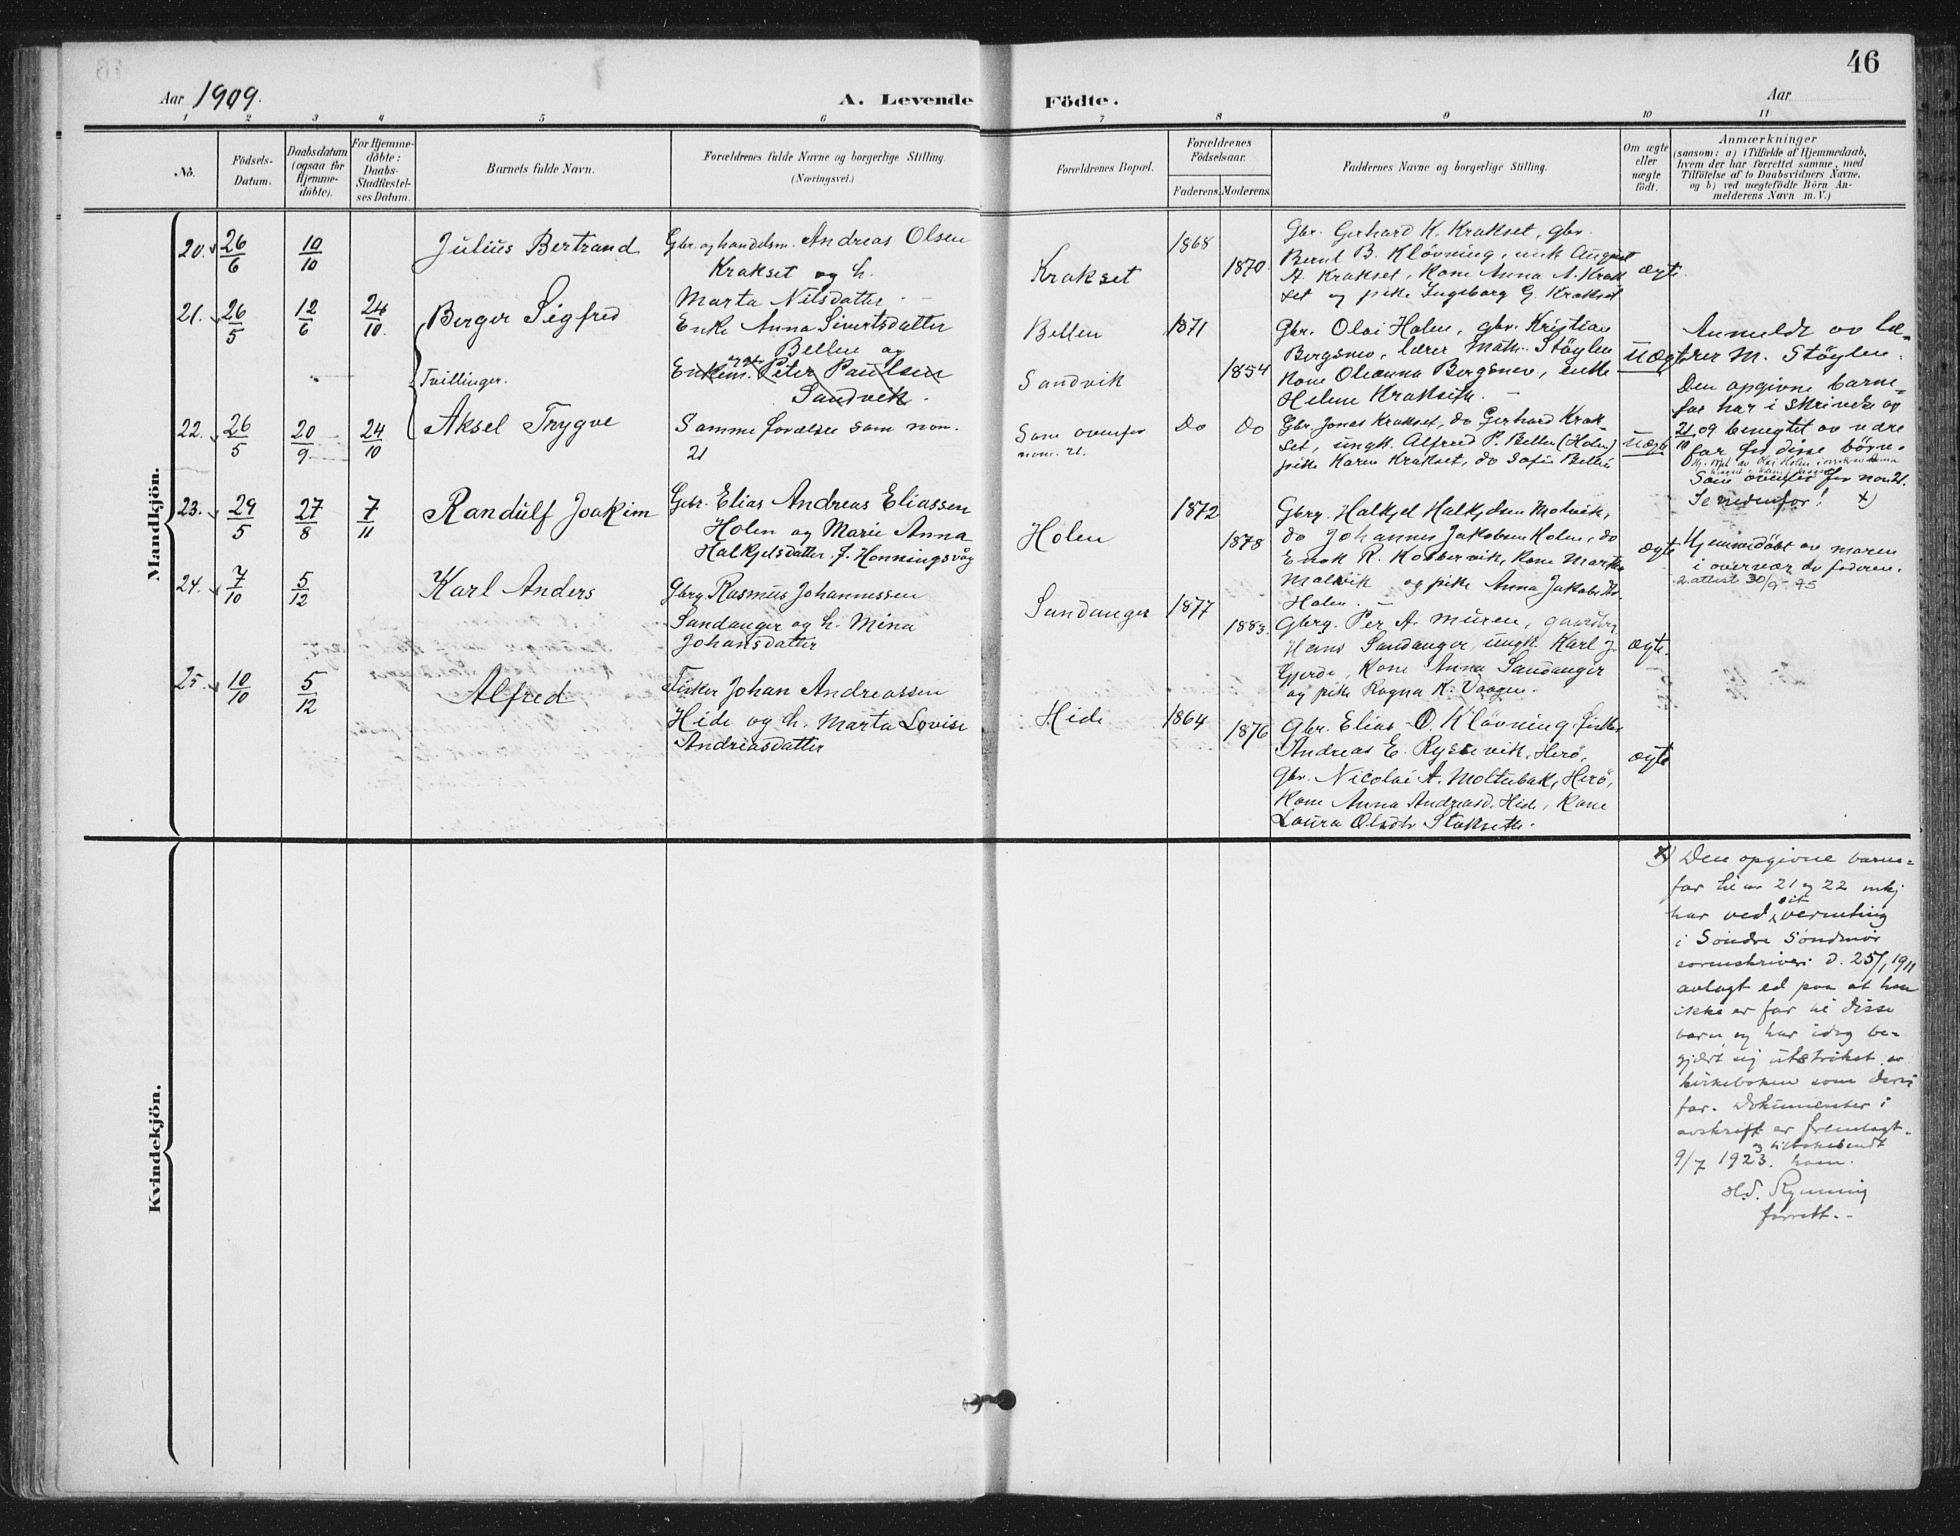 46
Aar 1909.
A. Levende
Födte.
Aar
1 2 3 4 5 6 7 8 9 10 11
No.
Födsels-
Datum.
Daabsdatum
(ogsaa for
Hjemme-
döbte).
For Hjemme-
döbte:
Daabs-
Stadfæstel-
ses Datum.
Barnets fulde Navn.
Forældrenes fulde Navne og borgerlige Stilling.
(Næringsvei.)
Forældrenes Bopæl.
Forældrenes
Födselsaar.
Faderens. Moderens.
Faddernes Navne og borgerlige Stilling.
Om ægte
eller
uægte
födt.
Anmærkninger
(saasom: a) i Tilfælde af Hjemmedaab,
hvem der har forrettet samme, med
Tilföielse af to Daabsvidners Navne,
og b) ved uægtefödte Börn An-
melderens Navn m. V.)
Mandkjön.
20. 26/6 10/10
Julius Bertrand
Gbr. og handelsm. Andreas Olsen
Krakset og h.
Marta Nilsdatter
Krakset
1868
1870
Gbr. Gerhard K. Krakset, gbr.
Bernt B. Klövning, unk August
A. Krakset, Kone Anna A. Krak
set og pike Ingeborg G. Krakset
ægte
21. 26/5 12/6 24/10
Berger Sigfred
Tvillinger.
Enke Anna Sivertsdatter
Bellen og
Enkem. Peter Paulsen
Sandvik
Bellen
Sandvik
1871
1854
Gbr. Olai Holen, gbr. Kristian
Bergsnev, lærer Math. Støylen
Kone Oleanna Bergsnev, enke
Helene Krakset
uægte
Anmeldt av læ-
rer M. Støylen.
Den opgivne barne-
far har i skrivelse av
21/10 09 benegtet at være
far for disse børn.
22. 26/5 20/9 24/10
Aksel Trygve
Samme forældre som nom.
21
Som ovenfor
nom. 21.
Do Do
Gbr. Jonas Krakset, do Gerhard Krak-
set, ungk. Alfred P. Bellen (Holen)
pike Karen Krakset, do Sofie Bellen
uægte
Som ovenfor for nom 21.
Se nedenfor! x)
23. 29/5 27/8 7/11
Randulf Joakim
Gbr. Elias Andreas Eliassen
Holen og Marie Anna
Halkjelsdatter f. Honningsvåg
Holen
1872
1878
Gbrg. Halkjel Halkjelsen Molvik,
do Johannes Jakobsen Holen, do
Enok R. Kobbervik, Kone Marta
Molvik og pike Anna Jakobsdtr
Holen.
ægte
Hjemmedøbt av moren
i overvær av faderen.
attest 30/9-45
24. 7/10 5/12
Karl Anders
Gbrg Rasmus Johannessen
Sandanger og h. Mina
Johansdatter
Sandanger
1877
1883
Gbrg. Per A. Muren, gaardbr.
Hans Sandanger, ungk. Karl J.
Gjerde, Kone Anna Sandanger
og pike Ragna K. Vaagen.
ægte
25. 10/10 5/12
Alfred
Fisker Johan Andreassen
Hide og h. Marta Lovise
Andreasdatter
Hide
1864
1876
Gbr. Elias O Klövning, fisker
Andreas E. Rystevik, Herö,
Gbr. Nicolai A. Moltubak, Herö,
Kone Anna Andreasd. Hide, Kone
Laura Olsdtr Stokset.
ægte
Kvindekjön.
x) Den opgivne barne-
far til nr 21 og 22 mkj
har ved sit verneting
i Söndre Söndmör
sorenskriveri d. 25/1 1911
avlagt ed paa at han
ikke er far til disse
barn og har idag be-
gjært sig utstrøket av
kirkeboken som deres
far. Dokumenter i
avskrift er fremlagt
og tilbakesendt
9/7 1923. ham.